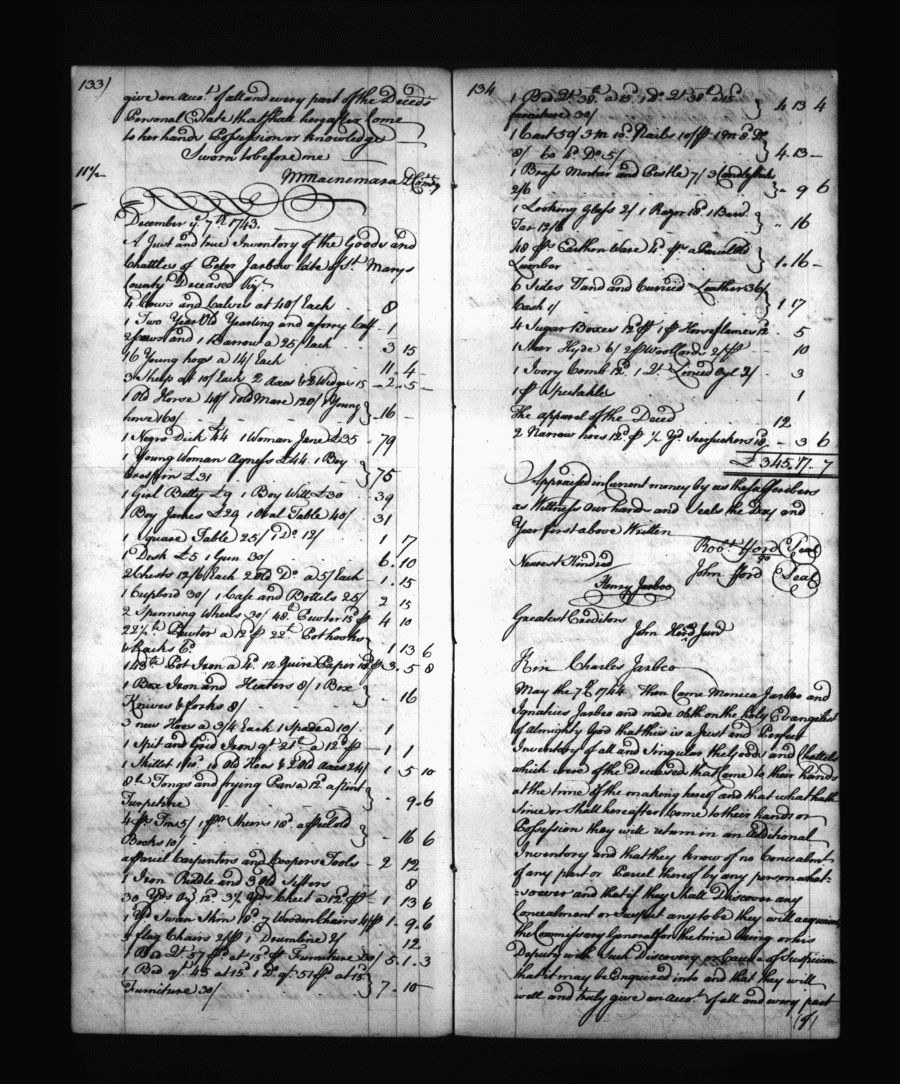 133)
give an acct. of all and every part of the Deced's
Personal Estate that shall hereafter Come
to her hands Possession or Knowledge
Sworn to before me
11½
December ye. 7th. 1743.
A Just and true Inventory of the Goods and
Chattles of Peter Jarboe late of St. Marys
County Deceased Viz.
4 Cows and Calves at 40/ Each 8
1 Two Year Old Yearling and a forry Calf 1
2 Sows and 1 Barrow a 25/ Each 3 15
16 Young hogs a 14/ Each 11 4
3 Sheep at 10/ Each 2 Axes & 2 Wedges 15 2 5
1 Old Horse 4 1 old Mare 120/ 1 Young
horse 160/ 16
1 Negro Dick £44 1 Woman Jane £35 79
1 Young Woman Agness £44 1 Boy
Cresspin £31 75
1 Girl Betty £9 1 Boy Will £30 39
1 Boy James £29 1 Oval Table 40/ 31
1 Square Table 25/ 1 Do. 12/ 1 17
1 Desk £5 1 Gun 30/ 6 10
2 Chests 12/6 Each 2 Old Do. a 5/ Each 1 15
1 Cupbord 30/ 1 Case and Bottels 25/ 2 15
2 Spinning Wheels 30/ 48lb. Pewter 15d. 4 10
22½lb Pewter a 12d 22lb Pothooks
& Racks 6d. 1 13 6
143lb Pot Iron a 4d. 12 Quire Paper 3 5 8
1 Box Iron and Heaters 8/ 1 Box
Knives & forks 8/ 16
3 new Hoes a 3/4 Each 1 Spade a 10/ 1
1 Spit and Grid Iron qt. 21lb a 12d 1 1
1 Skillet 1/10 Old Hoes & 2 Old Axes 24/ 1 5 10
8lb Tongs and frying Pan a 12d. a pint
Turpetine 9 6
4 Tin 5/ 1 Sheers 18d. a old
Books 10/ 16 6
a Parcel Carpenters and Coopers Tools 2 12
1 Iron Riddle and 3 Old Sifters 8
30 Yds 12d. 3½ Yds Check a 12d 1 13 6
1 Yd Swan Skin 18d. 7 Wooden Chairs 1 9 6
flag Chairs 2/ 1 12
1 Bed Qt. 57 at 15d Furniture 30/ 5 1 3
1 Bed qt. 45 at 15d. 1 Do. qt. 51 at 15d
Furniture 30/ 7 10
134
1 Bed Qt. 38lb a 15d. 1 Do. Qt 38lb a 15d.
furniture 30/ 4 13 4
1 Cast 59/ 3m 10d. Nails 10/ 1m 8d Do
8/ 60 4d. Do 5/ 4 13
1 Brass Mortar and Pestle 7/ 3 Candlesticks
2/6 9 6
1 Looking Glass 2/ 1 Razor 18d. 1 Barr.
Tar 12/6 16
48 Earthen Ware 4d. a Parcel Old
Lumber 1 16
6 Sides Tand and Curried Leather 36/
Cash 1/ 1 17
4 Sugar Boxes 12d 1 Horseflemes 12d. 5
1 Steer Hyde 6/ 2 Wool Cards 2/ 10
1 Ivory Comb 12d. 1 Qt. Linseed Oyl 2/ 3
1 pr Spectakle 1
The apparel of the Deced 12
2 Narrow hoes 12d. ½ Yd. Seersuckers 18d. 3 6
£345.17.7
Appraised in Current money by us the Subscribers
as Wittness Our hands and Seals the Day and
Year first above Written
Robt. fford Seal
John fford Seal
Nearest Kindred
Henry Jarboe
Greatest Creditors
John Junr
Kin Charles Jarboe
May the 7th 1744. Then Came Monica Jarboe and
Ignatius Jarboe and made Oath on the holy Evangelist
of Almighty God that this is a Just and Perfect
Inventory of all and Singular the Goods and Chattels
which were of the Deceased that Came to their hands
at the time of the making hereof and that what hath
Since or Shall hereafter Come to their hands or
Possession they will return in an additional
Inventory and that they know of no Concealmt.
of any part or Parcel thereof by any person what-
soever and that if they Shall Discover any
Concealment or Suspect any to be they will acquaint
the Commissary General for the time being or his
Deputy with Such Discovery or Cause of Suspicion
that it may be Enquired into and that they will
well and truly give an Acct. of all and every part